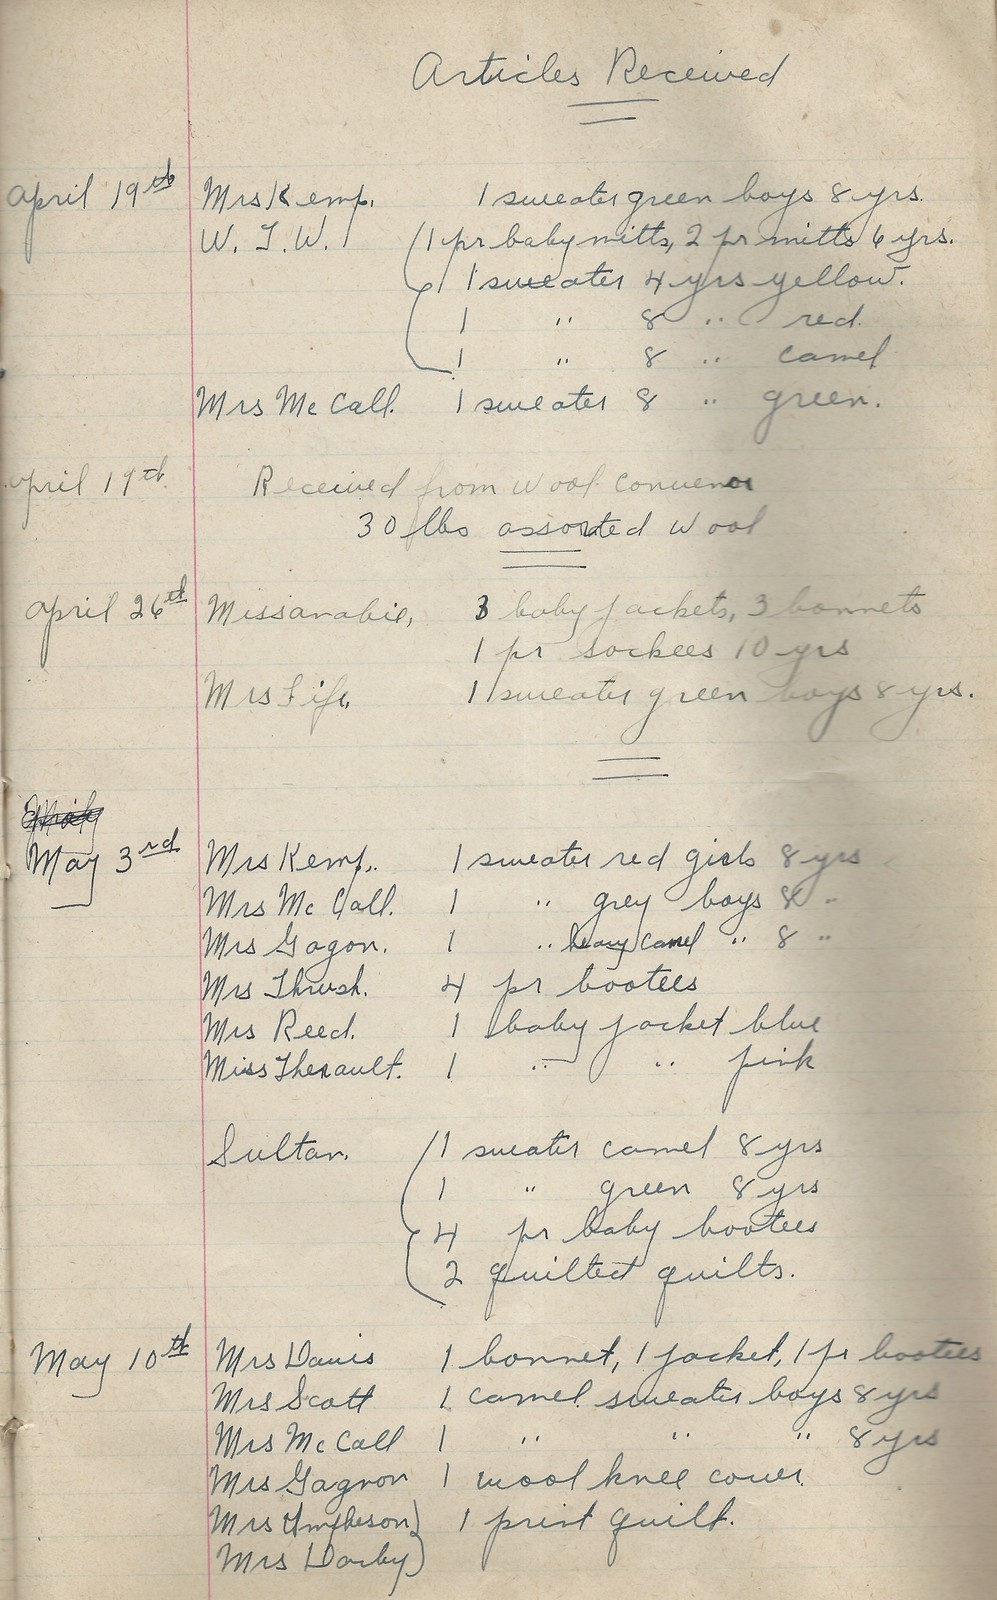 Articles Received
April 19th Mrs Kemp. 1 sweater green boys 8 yrs.
W. I. W. 1 pr baby mitts, 2 pr mitts 6 yrs.
1 sweater 4 yrs yellow.
1 " 8 " red.
1 " 8 " camel
Mrs McCall. 1 sweater 8 " green.
April 19th. Received from Wool Convenor
30 lbs assorted Wool
April 26th Missanabie, 3 baby jackets, 3 bonnets
1 pr sockees 10 yrs
Mrs Fife, 1 sweater green boys 8 yrs.
May 3rd Mrs Kemp. 1 sweater red girls 8 yrs
Mrs McCall. 1 " grey boys 8 "
Mrs Gagon. 1 " heavy camel " 8 "
Mrs Thrush. 4 pr bootees
Mrs Reed. 1 baby jacket blue
Miss Therault. 1 " " pink
Sultan. 1 sweater camel 8 yrs
1 " green 8 yrs
4 pr baby bootees
2 quilted quilts.
May 10th Mrs Davis 1 bonnet, 1 jacket, 1 pr bootees
Mrs Scott 1 camel sweater boys 8 yrs
Mrs McCall 1 " " " 8 yrs
Mrs Gagnon 1 wool knee cover.
Mrs 1 print quilt.
Mrs Darby